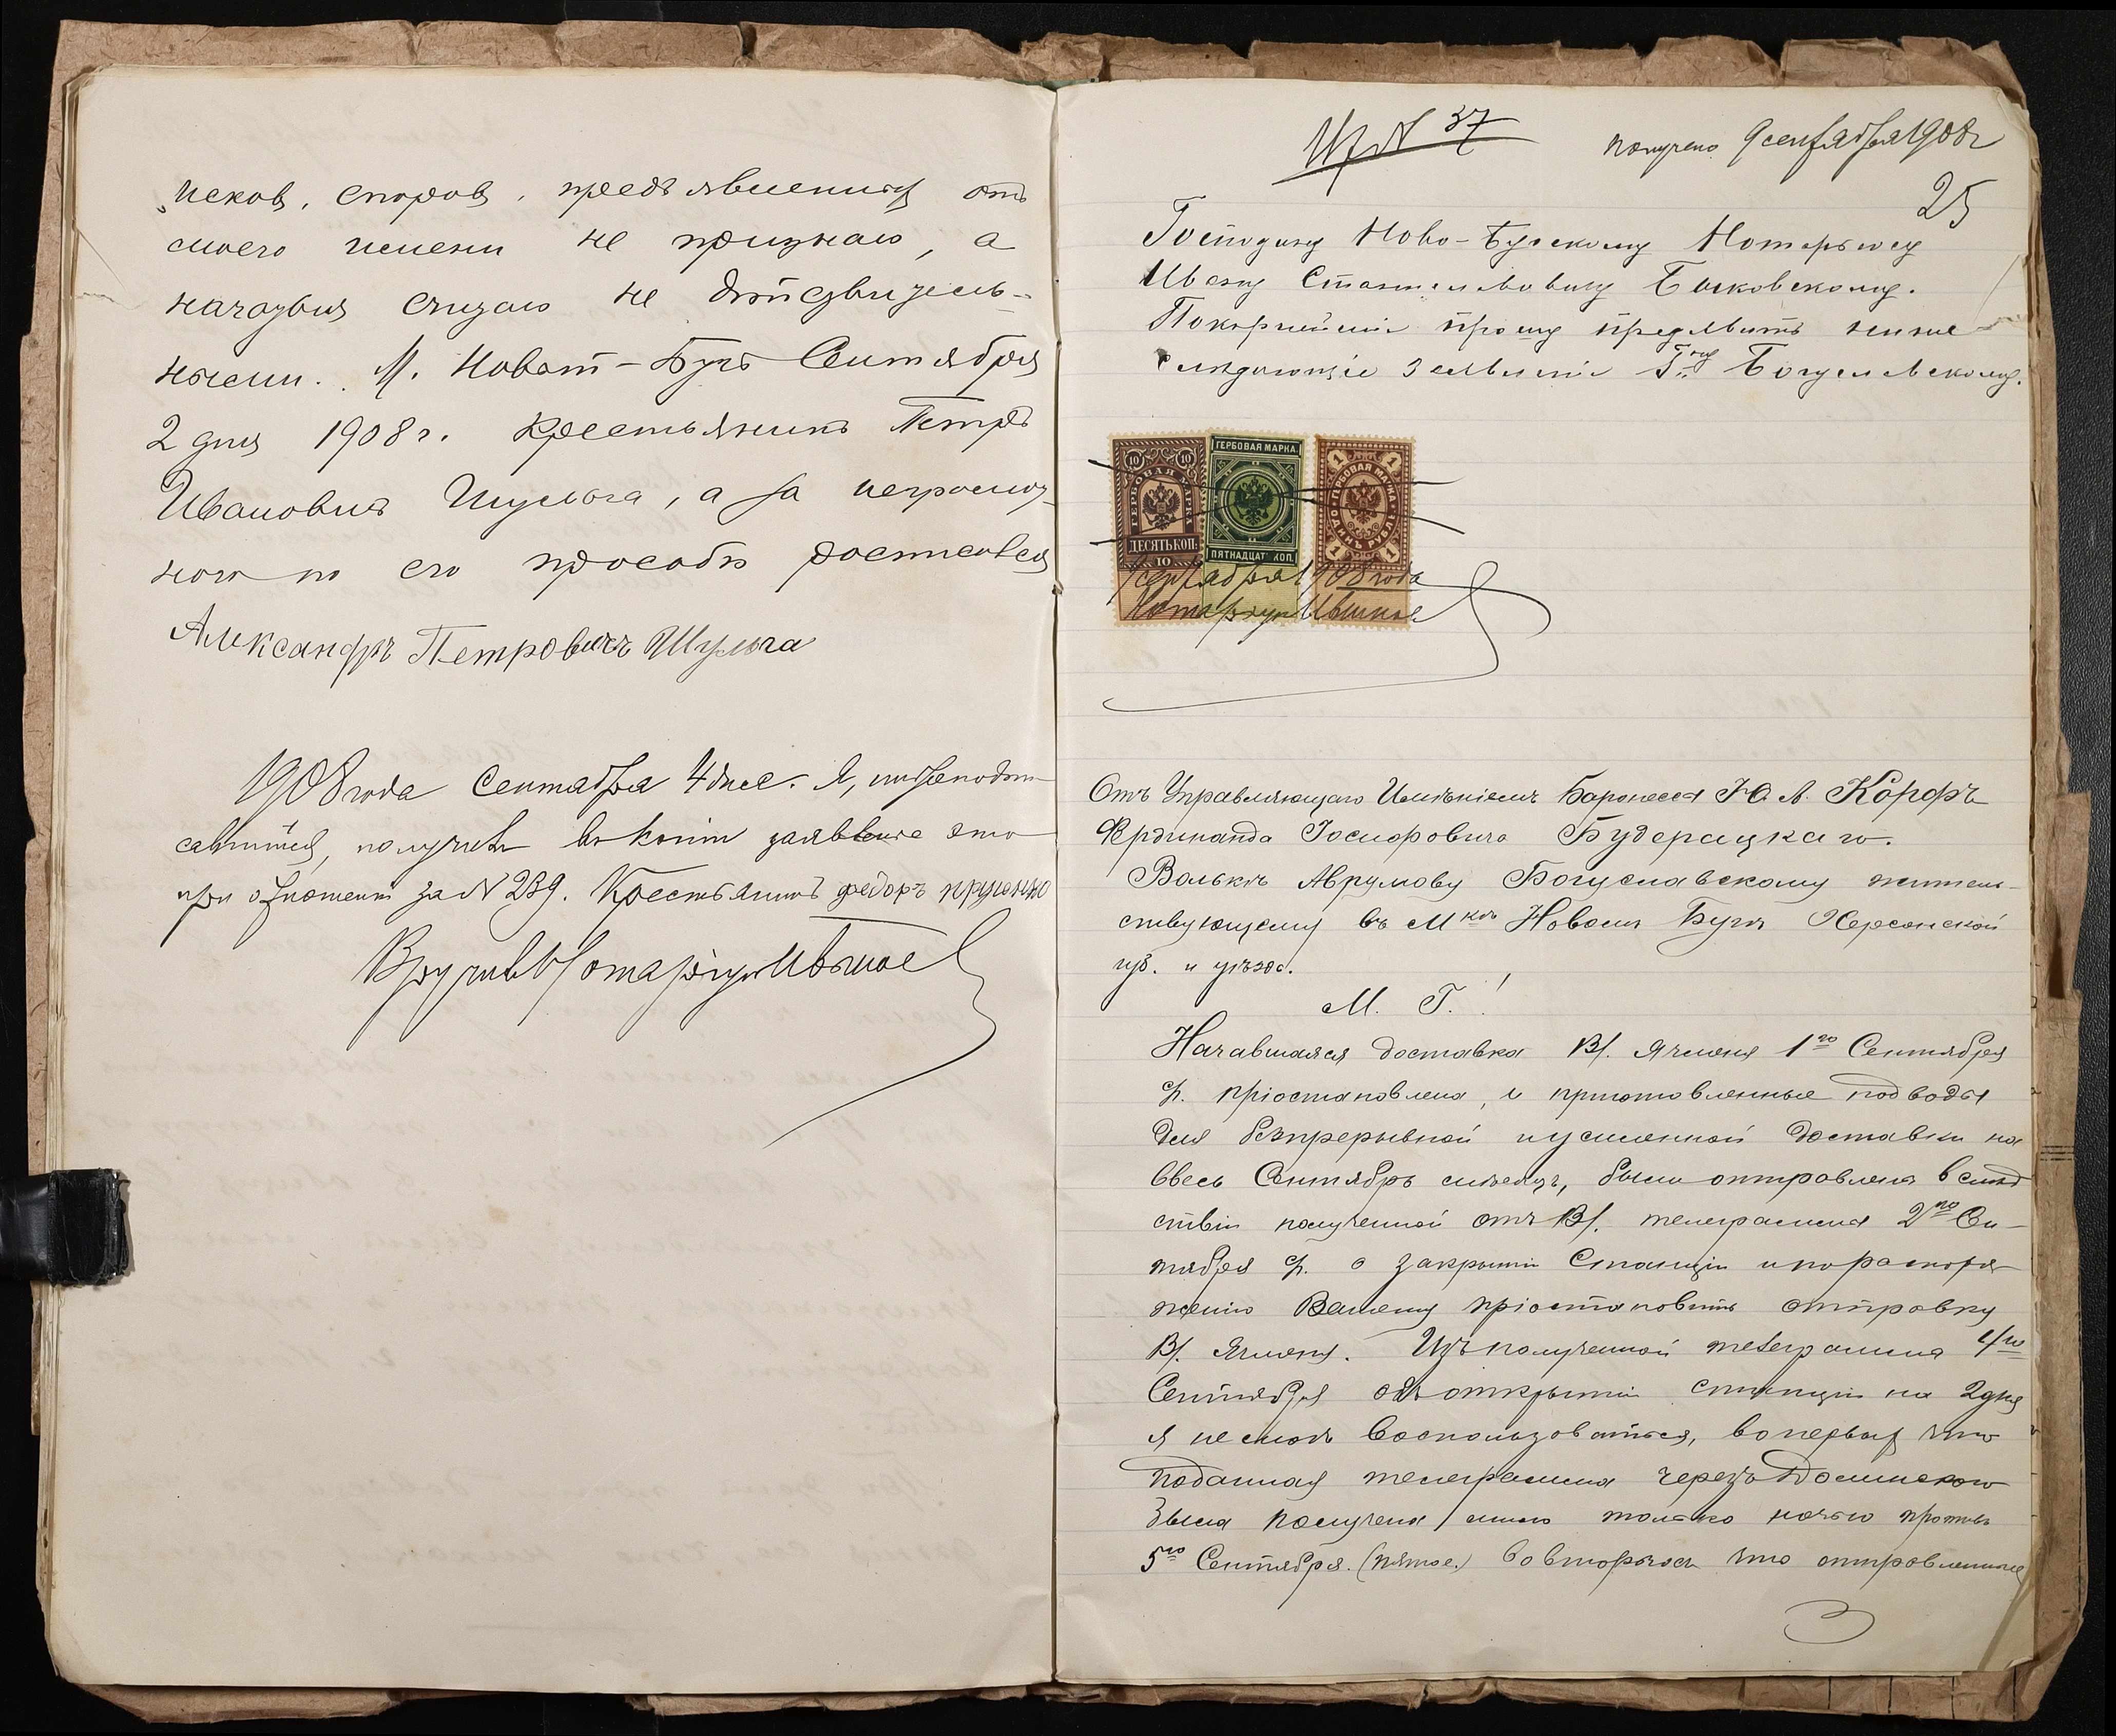 исковъ, споровъ, предъявленныя отъ
моего имени не признаю, а
началъныя считаю не дѣйствитель-
ными. М. Новый-Бугъ Сентября
2 дня 1908 г. Крестьянинъ Петръ
Ивановичъ Шульга, а за неграмот-
ного по его просьбѣ росписался
Александръ Петровичъ Шульга
1908 года Сентября 4 дня. Я, нижеподпи
савшійся, получилъ въ копіи заявленіе это
при отношеніи за N 239. Крестьянинъ федоръ
Вручилъ Нотаріусъ
N 37
получено 9 сентября 1908 г
25
Господину Ново-Бугскому Нотаріусу
Ивану Станиславовичу Быковскому.
Покорнѣйше прошу предъявить ниже
слѣдующіе заявленіе Гну Богуславскому.
ГЕРБОВАЯ МАРКА
10 10
ДЕСЯТЬ КОП.
10
ГЕРБОВАЯ МАРКА
ПЯТНАДЦАТЬ КОП.
ГЕРБОВАЯ МАРКА ОДИНЪ РУБЛЬ
1 1 1 1
9 сентября 1908 года
Нотаріусъ
Отъ Управляющаго Имѣніемъ Баронесса Ю. А. Корфъ
Фердинанда Іосифовича Будерацкаго.
Волькѣ Аврумову Богуславскому житель-
ствующему въ Мкѣ Новомъ Бугѣ Херсонской
губ. и уѣзда.
М. Г.!
Начавшаяся доставка В/. Ячменя 1го Сентября
с/г. пріостановлена, и приготовленные подводы
для безпрерывной и усиленной доставки на
ввесь Сентябрь мѣсяцъ, были отправлены вслѣд
ствіи полученной отъ В/. телеграмма 2го Сен-
тября с/г. о закрытіи Станціи и по распоря-
женію Вашему пріостановить отправку
В/. Ячменя. Изъ полученной телеграмма 4го
Сентября объ открытіи станціи на 2 дня
я не смогъ воспользоваться, вопервыхъ что
поданная телеграмма черезъ Долинскою
была получена мною только ночью противъ
5го Сентября. (пятое.) вовторыхъ что отправленные